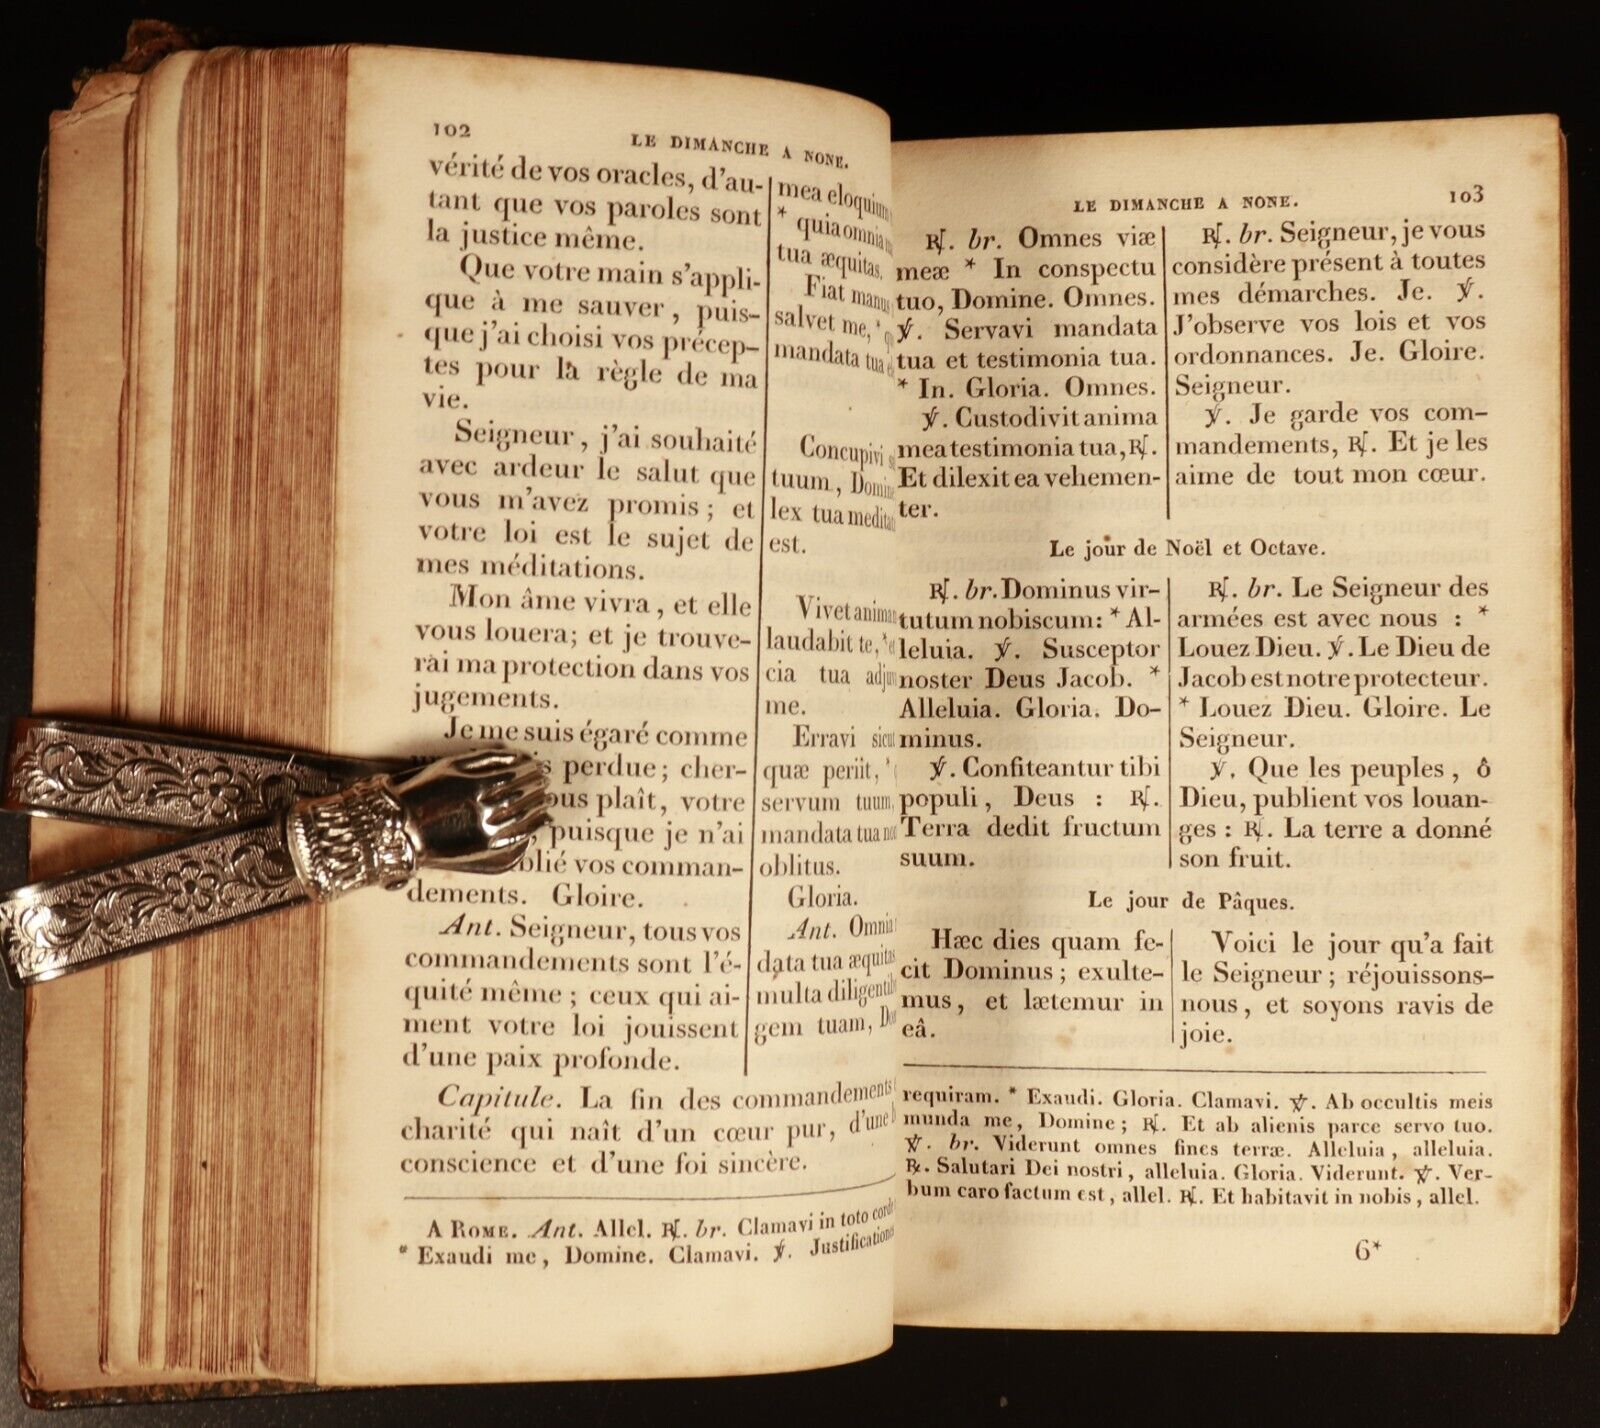 102
LE DIMANCHE A NONE.
vérité de vos oracles, d'au-
tant que vos paroles sont
la justice même.
Que votre main s'appli-
que à me sauver, puis-
que j'ai choisi vos précep-
tes pour la règle de ma
vie.
Seigneur, j'ai souhaité
avec ardeur le salut que
vous m'avez promis ; et
votre loi est le sujet de
mes méditations.
Mon âme vivra, et elle
vous louera; et je trouve-
rai ma protection dans vos
jugements.
Je me suis égaré comme
perdue; cher-
plaît, votre
puisque je n'ai
vos comman-
dements. Gloire.
Ant. Seigneur, tous vos
commandements sont l'é-
quité même ; ceux qui ai-
ment votre loi jouissent
d'une paix profonde.
mea eloquium
* quia omnia
tua æquitas.
Fiat manus
salvet me, *
mandata tua
Concupivi
tuum, Domine
lex tua medita
est.
Vivet anima
laudabit te, *
cia tua adju
me.
Erravi sicut
quæ periit, *
servum tuum,
mandata tua non
oblitus.
Gloria.
Ant. Omnia
data tua æquitas
multa diligentib
gem tuam, Do
Capitule. La fin des commandements
charité qui naît d'un cœur pur, d'une
conscience et d'une foi sincère.
A ROME. Ant. Allel. ℟. br. Clamavi in toto corde
* Exaudi me, Domine. Clamavi. ℣. Justificationes
LE DIMANCHE A NONE.
103
℟. br. Omnes viæ
meæ * In conspectu
tuo, Domine. Omnes.
℣. Servavi mandata
tua et testimonia tua.
* In. Gloria. Omnes.
℣. Custodivit anima
mea testimonia tua, ℟.
Et dilexit ea vehemen-
ter.
℟. br. Seigneur, je vous
considère présent à toutes
mes démarches. Je. ℣.
J'observe vos lois et vos
ordonnances. Je. Gloire.
Seigneur.
℣. Je garde vos com-
mandements, ℟. Et je les
aime de tout mon cœur.
Le jour de Noël et Octave.
℟. br. Dominus vir-
tutum nobiscum: * Al-
leluia. ℣. Susceptor
noster Deus Jacob. *
Alleluia. Gloria. Do-
minus.
℣. Confiteantur tibi
populi, Deus : ℟.
Terra dedit fructum
suum.
℟. br. Le Seigneur des
armées est avec nous : *
Louez Dieu. ℣. Le Dieu de
Jacob est notre protecteur.
* Louez Dieu. Gloire. Le
Seigneur.
℣. Que les peuples, ô
Dieu, publient vos louan-
ges : ℟. La terre a donné
son fruit.
Le jour de Pâques.
Hæc dies quam fe-
cit Dominus ; exulte-
mus, et lætemur in
eâ.
Voici le jour qu'a fait
le Seigneur ; réjouissons-
nous, et soyons ravis de
joie.
requiram. * Exaudi. Gloria. Clamavi. ℣. Ab occultis meis
munda me, Domine ; ℟. Et ab alienis parce servo tuo.
℣. br. Viderunt omnes fines terræ. Alleluia, alleluia.
℟. Salutari Dei nostri, alleluia. Gloria. Viderunt. ℣. Ver-
bum caro factum est, allel. ℟. Et habitavit in nobis, allel.
6*